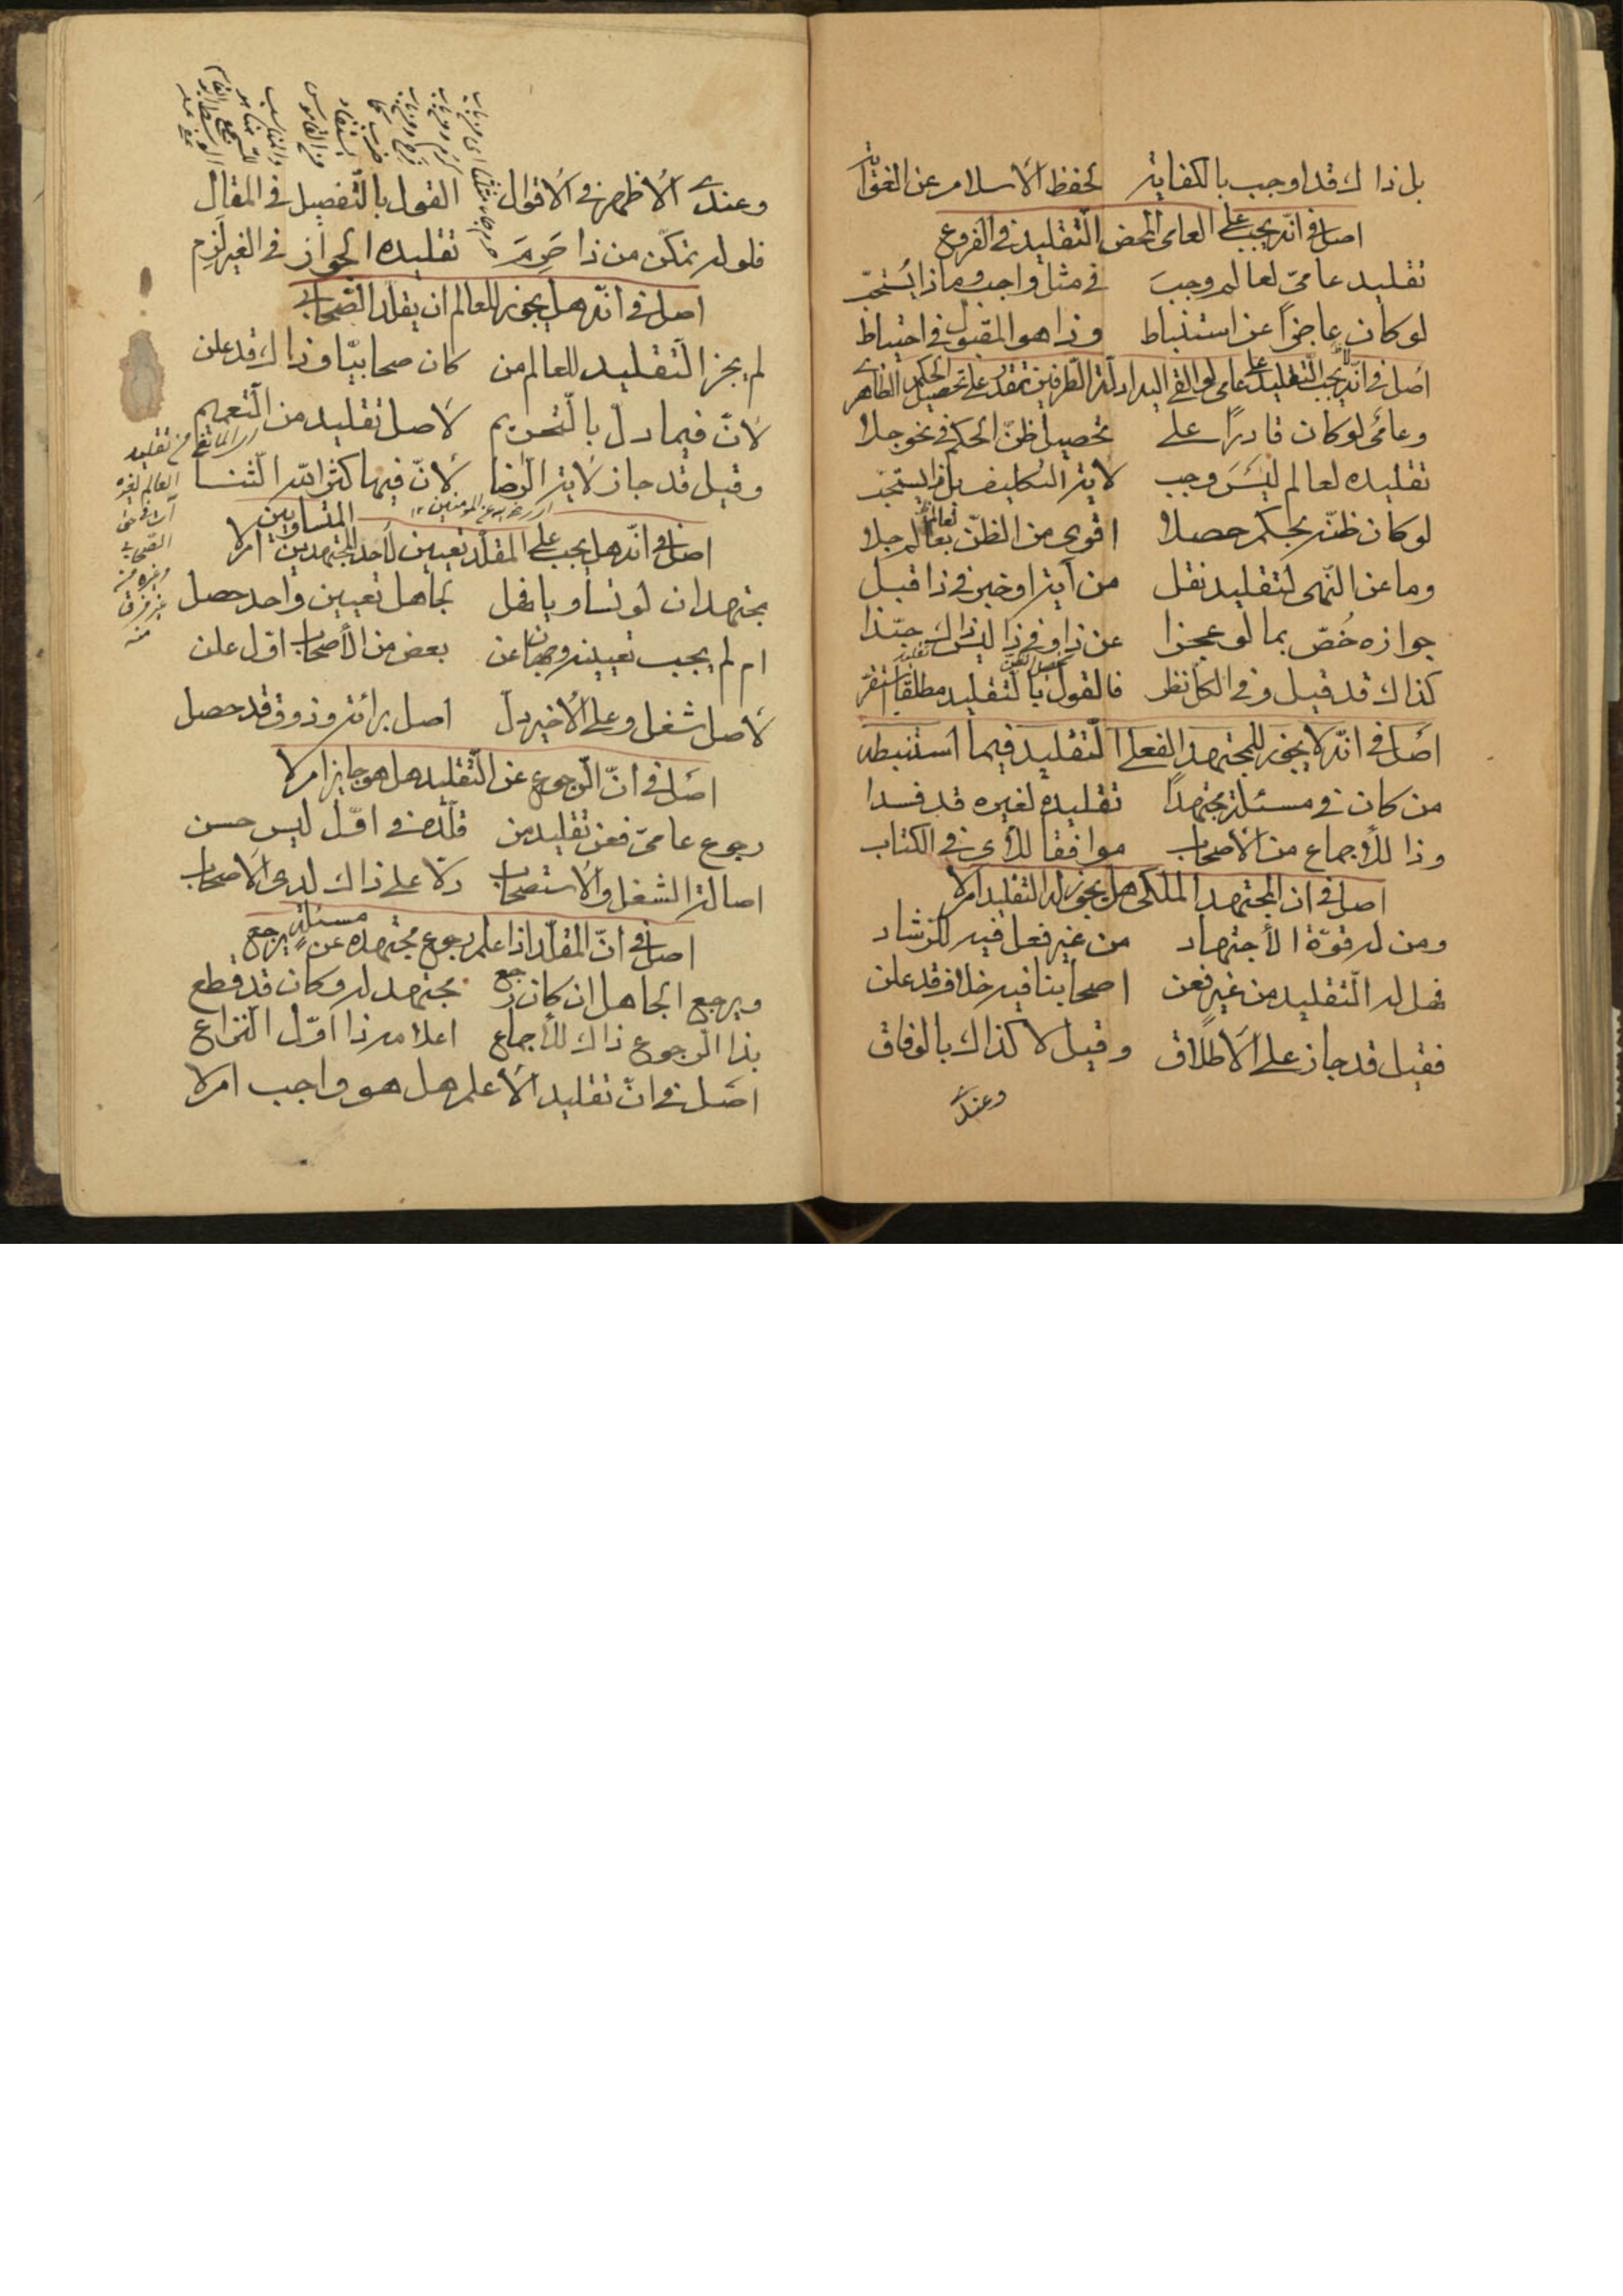 بل ذاك قد اوجب بالكفاية لحفظ الاسلام عن الغواية
اصل فى انّه يجب على العامى المحض التّقليد فى الفروع
تقليد عامىّ لعالم وجب فى مثل واجب وما ذا يُستحبّ
لو كان عاجزاً عن استنباط وذا هو المقبول فى احتياط
اصل فى انّه يجب التّقليد على عامى لو القى اليه ادلّة الطّرفين تقدّر على تحصيل الحكم الظاهرى
وعامّى لو كان قادراً على تحصيل ظنّ الحكم فى نحو جلا
تقليده لعالم ليس وجب لاية التكليف بل ذا يستحبّ
لو كان ظنّه بحكم حصلا اقوى من الظنّ بعالم جلا
وما عن النّهى لتقليد نقل من آية او خبر فى ذا قبل
جوازه خُصّ بما لو عجزا عن ذا وفى ذا ليس ذاك حبّذا
كذاك قد قيل وفى الكلّ نظر فالقول بالتقليد مطلقا استقرّ
اصل فى انّه لا يجوز للمجتهد الفعلى التّقليد فيما استنبطه
من كان فى مسئلة مجتهداً تقليده لغيره قد فسدا
وذا للأجماع من الاصحاب موافقا للأى فى الكتاب
اصل فى ان المجتهد الملكى هل يجوز له التقليد ام لا
ومن له قوّة الأجتهاد من غير فعل فيه للرّشاد
فهل له التّقليد من غير فعن اصحابنا فيه خلاف قد علن
فقيل قد جاز على الاطلاق وقيل لا كذاك بالوفاق
وعندى
وعندى الاظهر فى الاقوال القول بالتّفصيل فى المقال
فلو له تمكّن من ذا حَرِمَ تقليده الجواز فى الغير لَزِم
اصل فى انّه هل يجوز للعالم ان يقلّد الصّحابى
لم يجز التّقليد للعالم من كان صحابيّا وذاك قد علن
لانّ فيما دلّ بالتّحريم لاصل تقليد من التّعميم
وقيل قد جاز لاية الرّضا لانّ فيها كثر اللّه الثّنا
اصل فى انّه هل يجب على المقلّد تعيين لأحد المجتهدين المتساويين ام لا
مجتهدان لو تساويا فهل لجاهل تعيين واحد حصل
ام لم يجب تعيينه وجهان عن بعض من الأصحاب اوّل علن
لاصل شغل وعلى الاخير دل اصل برائة وذو وقد حصل
اصل فى انّ الرّجوع عن التّقليد هل هو جايز ام لا
رجوع عامىّ فعن تقليد من قلّده فى اوّل ليس حسن
اصالة الشّغل والاستصحاب دلّا على ذاك لدى الاصحاب
اصل فى انّ المقلّد اذا علم رجوع مجتهده عن مسئلةٍ يرجع
ويرجع الجاهل ان كان رجع مجتهد له وكان قد قطع
بذا الرّجوع ذاك للأجماع اعلامه ذا اوّل النّزاع
اصل فى انّ تقليد الأعلم هل هو واجب ام لا